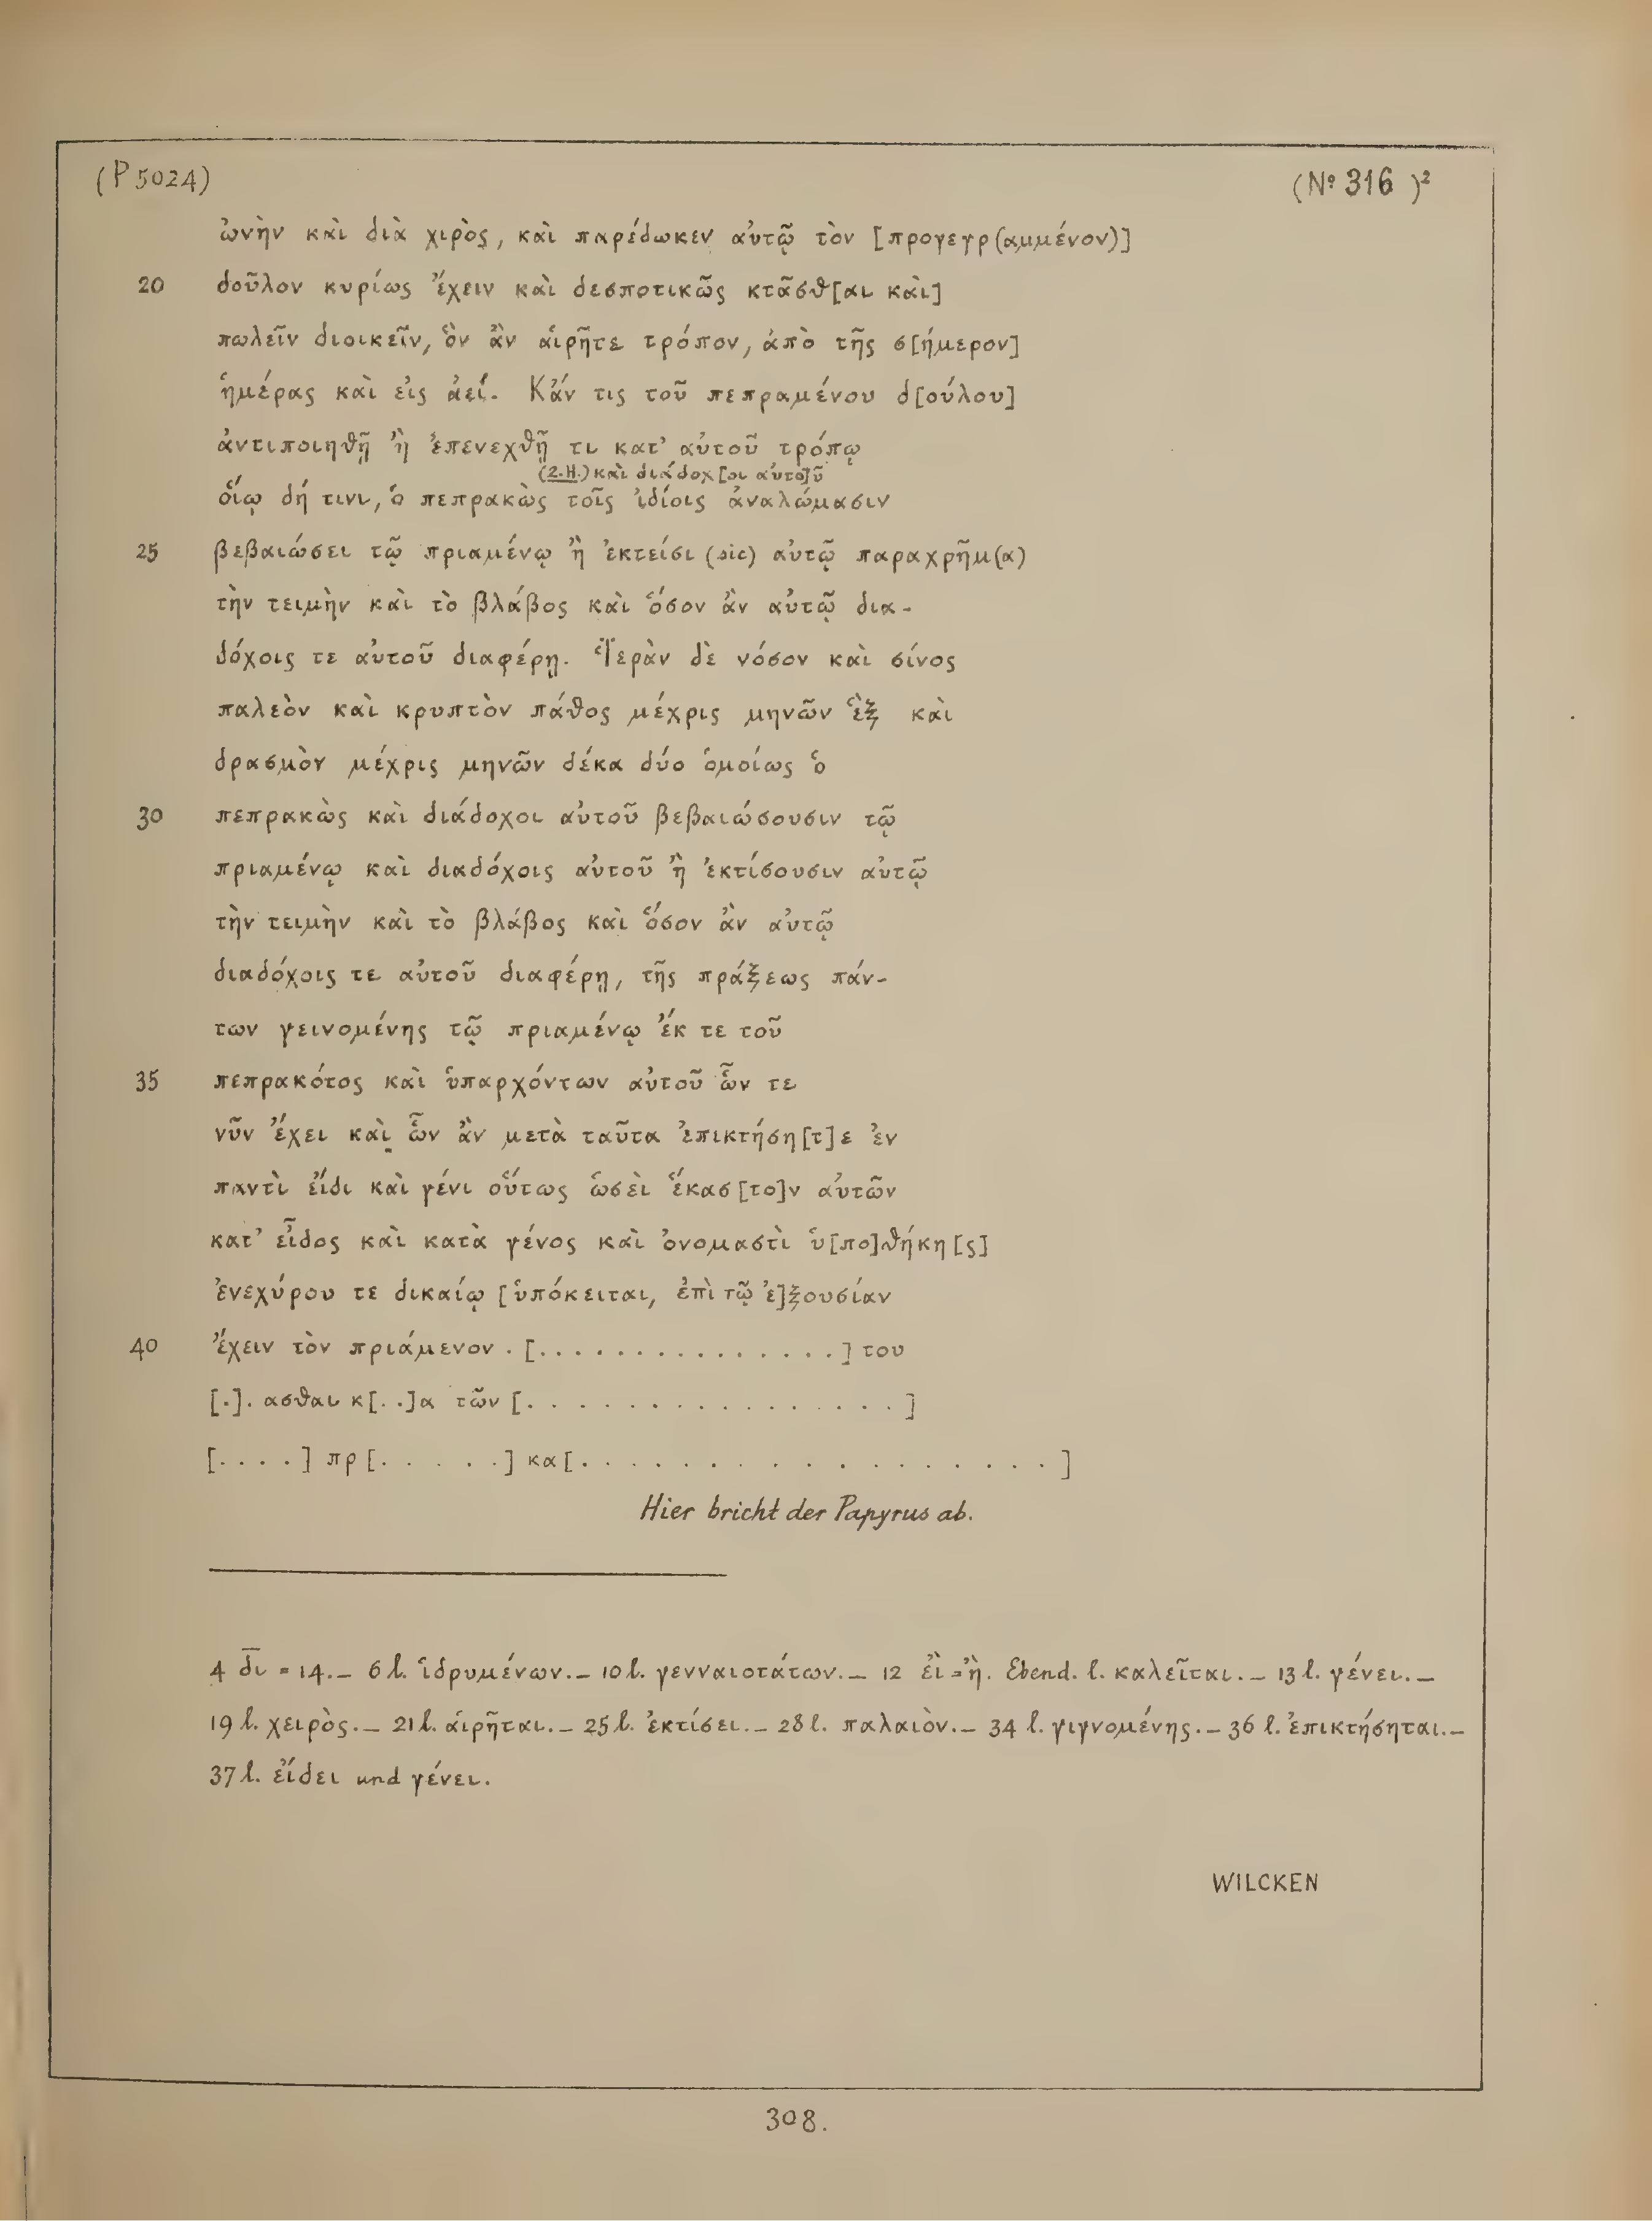 (P 5024) (Nº 316 )²
ὠνὴν καὶ διὰ χιρὸς, καὶ παρέδωκεν αὐτῷ τὸν [προγεγρ(αμμένον)]
20 δοῦλον κυρίως ἔχειν καὶ δεσποτικῶς κτᾶσθ[αι καὶ]
πωλεῖν διοικεῖν, ὃν ἂν αἱρῆτε τρόπον, ἀπὸ τῆς σ[ήμερον]
ἡμέρας καὶ εἰς ἀεί. Κἄν τις τοῦ πεπραμένου δ[ούλου]
ἀντιποιηθῇ ἢ ἐπενεχθῇ τι κατ' αὐτοῦ τρόπῳ
(2.H.) καὶ διάδοχ[οι αὐτο]ῦ
οἵῳ δή τινι, ὁ πεπρακὼς τοῖς ἰδίοις ἀναλώμασιν
25 βεβαιώσει τῷ πριαμένῳ ἢ ἐκτείσι (sic) αὐτῷ παραχρῆμ(α)
τὴν τειμὴν καὶ τὸ βλάβος καὶ ὅσον ἂν αὐτῷ δια-
δόχοις τε αὐτοῦ διαφέρῃ. Ἱ̈ερὰν δὲ νόσον καὶ σίνος
παλεὸν καὶ κρυπτὸν πάθος μέχρις μηνῶν ἓξ καὶ
δρασμὸν μέχρις μηνῶν δέκα δύο ὁμοίως ὁ
30 πεπρακὼς καὶ διάδοχοι αὐτοῦ βεβαιώσουσιν τῷ
πριαμένῳ καὶ διαδόχοις αὐτοῦ ἢ ἐκτίσουσιν αὐτῷ
τὴν τειμὴν καὶ τὸ βλάβος καὶ ὅσον ἂν αὐτῷ
διαδόχοις τε αὐτοῦ διαφέρῃ, τῆς πράξεως πάν-
των γεινομένης τῷ πριαμένῳ ἔκ τε τοῦ
35 πεπρακότος καὶ ὑπαρχόντων αὐτοῦ ὧν τε
νῦν ἔχει καὶ̣ ὧν ἂν μετὰ ταῦτα ἐπικτήση[τ]ε ἐν
παντὶ εἴδι καὶ γένι οὕτως ὡσεὶ ἕκασ[το]ν αὐτῶν
κατ' εἶδος καὶ κατὰ γένος καὶ ὀνομαστὶ ὑ[πο]θήκη[ς]
ἐνεχύρου τε δικαίῳ [ὑπόκειται, ἐπὶ τῷ ἐ]ξουσίαν
40 ἔχειν τὸν πριάμενον . [. . . . . . . . . . . . . . .] του
[.]. ασθαι κ[. .]α τῶν [. . . . . . . . . . . . . . . .]
[. . . .] πρ[. . . . . .] κα[. . . . . . . . . . . . . . . . .]
Hier bricht der Papyrus ab.
4 δ̅ι̅ = 14. — 6 l. ἱδρυμένων. — 10 l. γενναιοτάτων. — 12 εἰ = ἢ. Ebend. l. καλεῖται. — 13 l. γένει. —
19 l. χειρὸς. — 21 l. αἱρῆται. — 25 l. ἐκτίσει. — 28 l. παλαιὸν. — 34 l. γιγνομένης. — 36 l. ἐπικτήσηται. —
37 l. εἴδει und γένει.
WILCKEN
308.